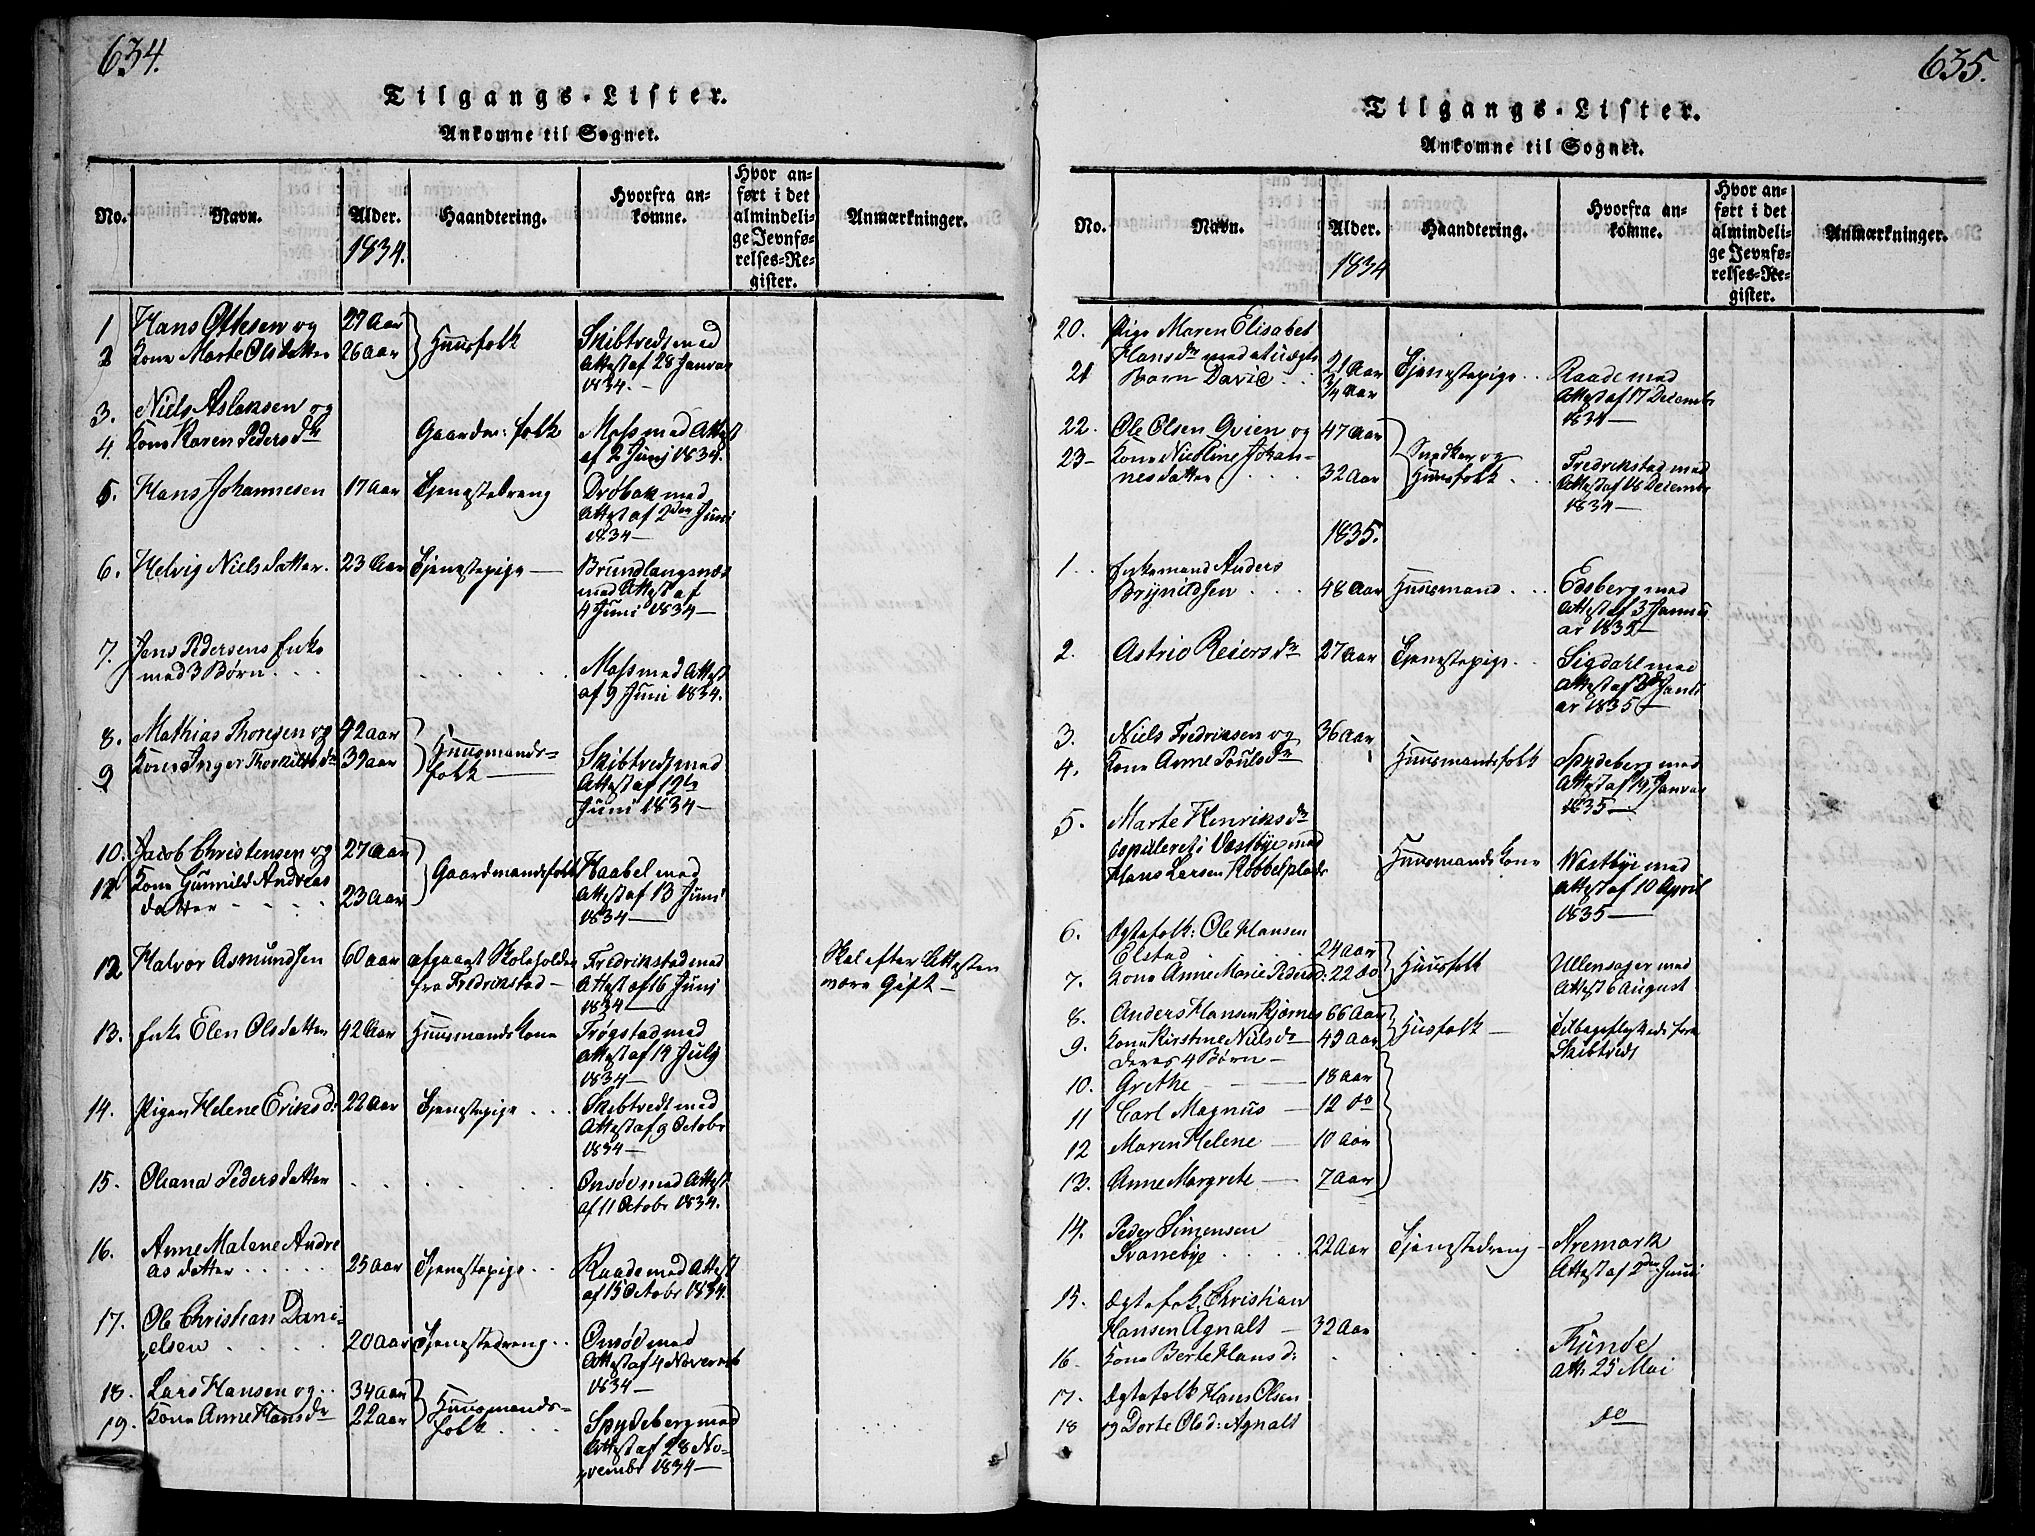 634.
Tilgangs-Lister.
Ankomne til Sognet.
No. Navn. Alder. Haandtering. Hvorfra an-
komne. Hvor an-
ført i det
almindeli-
ge Jevnfø-
relses-Re-
gister. Anmærkninger.
1834.
1 Hans Ottesen og 27 Aar Huusfolk Skibtvedt med
2 Kone Marte Olsdatter 26 aar Attest af 28 Januar
1834.
3. Niels Aslaksen og
4. Kone Karen Pedersdr Gaardm: folk Moss med Attest
af 2 Junj 1834.
5. Hans Johannesen 17 Aar Tjenestedreng Drøbak med
Attest af 2den Juni
1834
6. Helvig Nielsdatter. 23 Aar Tjenestepige Brundlangsnæs
med Attest af
4 Juni 1834
7. Jens Pedersens Enke
med 3 Børn Moss med Attest
af 9 Juni 1834.
8. Mathias Thoresen og 42 aar Huusmands-
9 Kone Inger Thorkildsdr 39 aar folk Skibtvedt med
Attest af 12te
Juni 1834
10. Jacob Christensen og 27 aar Gaardmandsfolk Haabel med
11 Kone Gunnild Andreas
datter 23 Aar Attest af 13 Juni
1834
12 Halvor Asmundsen 60 aar afgaaet Skoleholder
fra Fredrikstad Fredrikstad med
Attest af 16 Junj
1834 Skal efter Attesten
være Gift
13. Enke Elen Olsdatter 42 Aar Huusmandskone Trøgstad med
Attest af 14 July
1834
14. Pigen Helene Eriksd: 22 aar Tjenestepige Skibtvedt med
Attest af 9 Octobr
1834
15. Oleana Pedersdatter Onsøe med Attest
af 11 Octobr 1834.
16. Anne Malene Andre
asdatter 25 aar Tjenestepige Raade med Attest
af 15 Octobr 1834.
17. Ole Christian Dani-
elsen 20 aar Tjenestedreng Onsøe med
Attest af 4 Novemb
1834
18. Lars Hansen og 34 aar Huusmands-
19. Kone Anne Hansdr 22 aar folk Spydeberg med
Attest af 28 No-
vembr 1834
635.
Tilgangs-Lister.
Ankomne til Sognet.
No. Navn. Alder. Haandtering. Hvorfra an-
komne. Hvor an-
ført i det
almindeli-
ge Jevnfø-
relses-Re-
gister. Anmærkninger.
1834
20. Pige Maren Elisabet
Hansdr med et uægte 21 Aar Tjenestepige Raade med
21 Barn David 3/4 Aar Attest af 17 Decembr
1834
22. Ole Olsen Qvien og 47 Aar Snedker og
23 Kone Nicoline Johan-
nesdatter 32 Aar Huusfolk Fredrikstad med
Attest af 18 Decembr
1834
1835.
1 Enkemand Anders
Brynildsen 48 aar Huusmand Edsberg med
Attest af 3 Janu
ar 1835
2. Astrid Reiersdr 27 aar Tjenestepige Sigdahl med
Attest af Janu
ar 1835
3. Niels Fredriksen og 36 aar
4. Kone Anne Poulsdr Huusmandsfolk Spydeberg med
Attest af 19 Januar
1835
5. Marte Henriksdr
copuleret i Vestbye med
Hans Larsen Huusmandskone Westbye med
Attest af 10 April
1835
6. Ægtefolk: Ole Hansen
Elstad 24 aar Huusfolk Ullensager med
7. Kone Anne Marie Pedersd: 22 do Attest 6 August
8. Anders Hansen Kjørnes 66 Aar Husfolk Tilbageflyttede fra
9. Kone Kirstine Nielsdr 49 aar Skibtvedt
deres 4 Børn
10. Grethe 18 aar
11 Carl Magnus 12 do
12 Maren Helene 10 aar
13. Anne Margrete 7 aar
14. Peder Simensen
Svanebye 22 Aar Tjenestedreng Aremark
Attest af 2den Juni
15. Ægtefolk. Christian
Hansen Agnalt 32 Aar
16. Kone Berte Hansd: Tunde
Att: 25 Mai
17. Ægtefolk Hans Olsen
18 og Dorte Olsd: Agnalt do